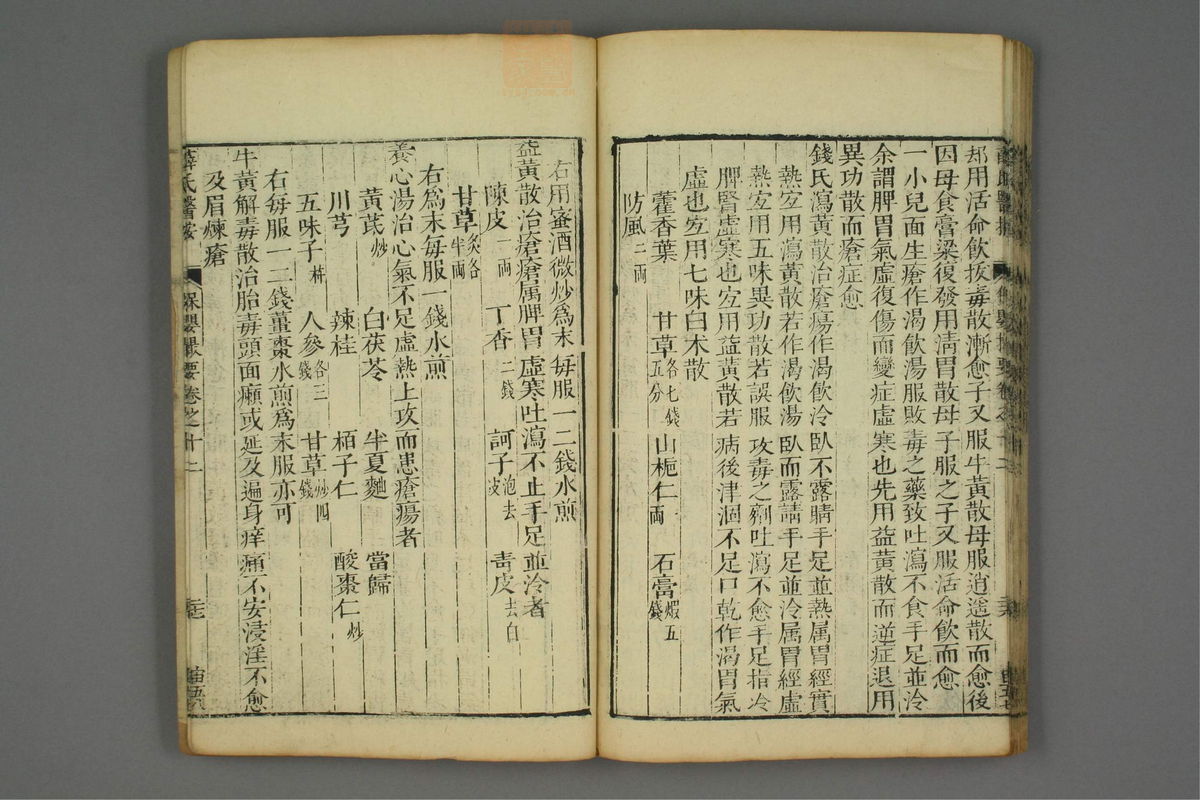 却用活命飲拔毒散漸愈子又服牛黃散母服逍遙散而愈後
因母食膏粱復發用清胃散母子服之子又服活命飲而愈
一小兒面生瘡作渴飲湯服敗毒之藥致吐瀉不食手足並冷
余謂脾胃氣虛復傷而變症虛寒也先用益黃散而逆症退用
異功散而瘡症愈
錢氏瀉黃散治瘡瘍作渴飲冷臥不露睛手足並熱属胃經實
熱宜用瀉黃散若作渴飲湯臥而露睛手足並冷属胃經虛
熱宜用五味異功散若誤服攻毒之劑吐瀉不愈手足指冷
脾腎虛寒也宜用益黃散若病後津涸不足口乾作渴胃氣
虛也宜用七味白术散
藿香葉 甘草各七錢五分 山梔仁一兩 石膏煆五錢
防風二兩
右用蜜酒微炒爲末每服一二錢水煎
益黃散治瘡瘡属脾胃虛寒吐瀉不止手足並冷者
陳皮一兩 丁香二錢 訶子泡去皮 青皮去白
甘草炙各半兩
右爲末每服一錢水煎
養心湯治心氣不足虛熱上攻而患瘡瘍者
黃芪炒 白茯苓 半夏麯 當歸
川芎 辣桂 栢子仁 酸棗仁炒
五味子杵 人參各三錢 甘草炒四錢
右每服一二錢薑棗水煎爲末服亦可
牛黃解毒散治胎毒頭面癩或延及遍身痒痛不安浸淫不愈
及眉煉瘡
薛氏醫案 保嬰撮要卷之十二